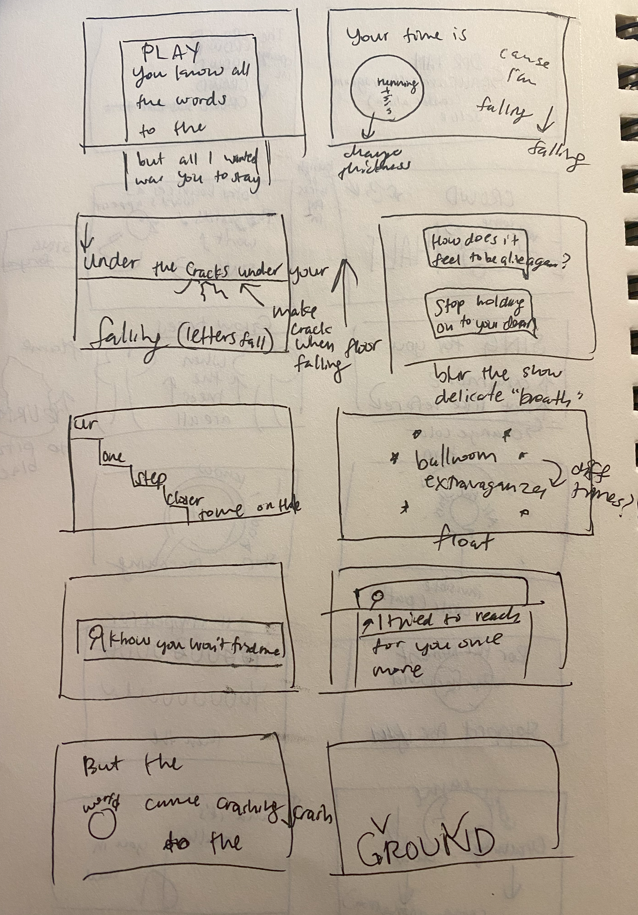 PLAY
you know all
the words
to the
but all I wanted
was you to stay
Your time is
running
change
thickness
cause
I'm
falling
falling
Under the cracks under your
floor
make
crack
when
falling
falling (letters fall)
How does it
feel to be alive again?
Stop holding
on to your dear
blur the show
delicate "breath"
one
step
closer
to me on the
ballroom
extravaganza
diff
times?
float
I know you won't find me
I tried to reach
for you once
more
But the
world came crashing
crash
to the
GROUND